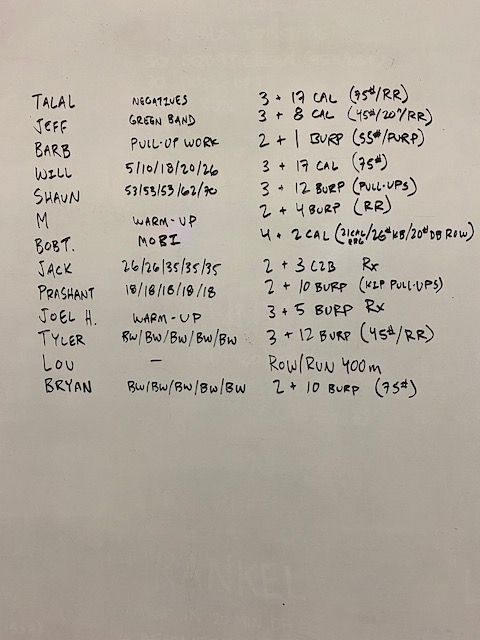 TALAL NEGATIVES 3 + 17 CAL (75#/RR)
JEFF GREEN BAND 3 + 8 CAL (45#/20"/RR)
BARB PULL-UP WORK 2 + 1 BURP (55#/PURP)
WILL 5/10/18/20/26 3 + 17 CAL (75#)
SHAUN 53/53/53/62/70 3 + 12 BURP (PULL-UPS)
M WARM-UP 2 + 4 BURP (RR)
BOB T. MOBI 4 + 2 CAL (21CAL ERG/26#KB/20#DB ROW)
JACK 26/26/35/35/35 2 + 3 C2B Rx
PRASHANT 18/18/18/18/18 2 + 10 BURP (KIP PULL-UPS)
JOEL H. WARM-UP 3 + 5 BURP Rx
TYLER BW/BW/BW/BW/BW 3 + 12 BURP (45#/RR)
LOU — ROW/RUN 400m
BRYAN BW/BW/BW/BW/BW 2 + 10 BURP (75#)